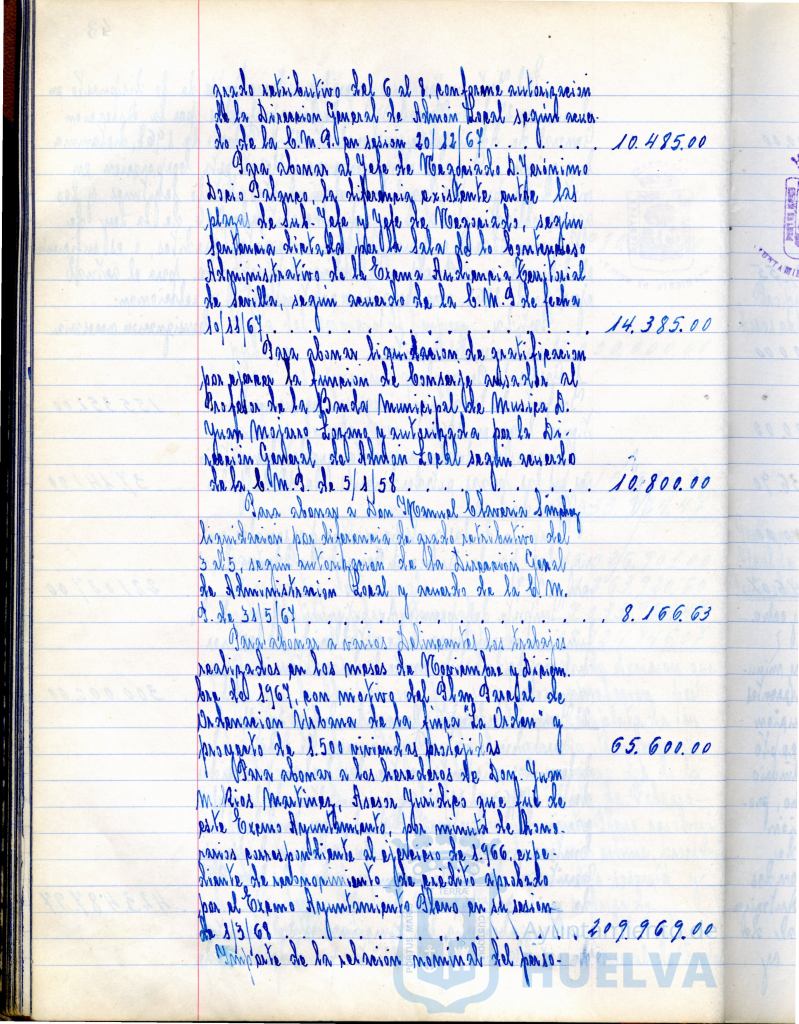 grado retributivo del 6 al 8, conforme autorización
de la Dirección General de Admón Local según acuer-
do de la C.M.P. en sesión 20/12/67 . . . . . 10.485.00
Para abonar al Jefe de Negociado D. Jerónimo
Docio Palanco, la diferencia existente entre las
plazas de Sub-Jefe y Jefe de Negociado, según
Sentencia dictada por la Sala de lo Contencioso
Administrativo de la Excma Audiencia Territorial
de Sevilla, según acuerdo de la C.M.P de fecha
10/11/67 . . . . . . . . . . . 14.385.00
Para abonar liquidación de gratificación
por ejercer la función de Conserje al
Profesor de la Banda Municipal de Musica D.
Juan Mojarro y autorizada por la Di-
rección General del Admón Local según acuerdo
de la C.M.P. de 5/1/58 . . . . . . . 10.800.00
Para abonar a Don Manuel Claveria Sánchez
liquidación por diferencia de grado retributivo del
3 al 5, según autorización de la Dirección Geral
de Administración Local y acuerdo de la C.M.
P. de 31/5/67 . . . . . . . . . . . 8.166.63
Para abonar a varios Delineantes los trabajos
realizados en los meses de Noviembre y Diciem-
bre del 1.967, con motivo del Plan Parcial de
Ordenación Urbana de la finca "La Orden" y
proyecto de 1.500 viviendas protejidas 65.600.00
Para abonar a los herederos de Don Juan
M. Rios Martinez, Asesor Jurídico que fué de
este Excmo Ayuntamiento, por minuta de hono-
rarios correspondiente al ejercicio de 1.966, expe-
diente de reconocimiento de crédito aprobado
por el Excmo Ayuntamiento Pleno en su sesión
de 1/3/68 . . . . . . . . 209.969.00
Importe de la relación nominal del perso-
Ayuntamiento de
HUELVA